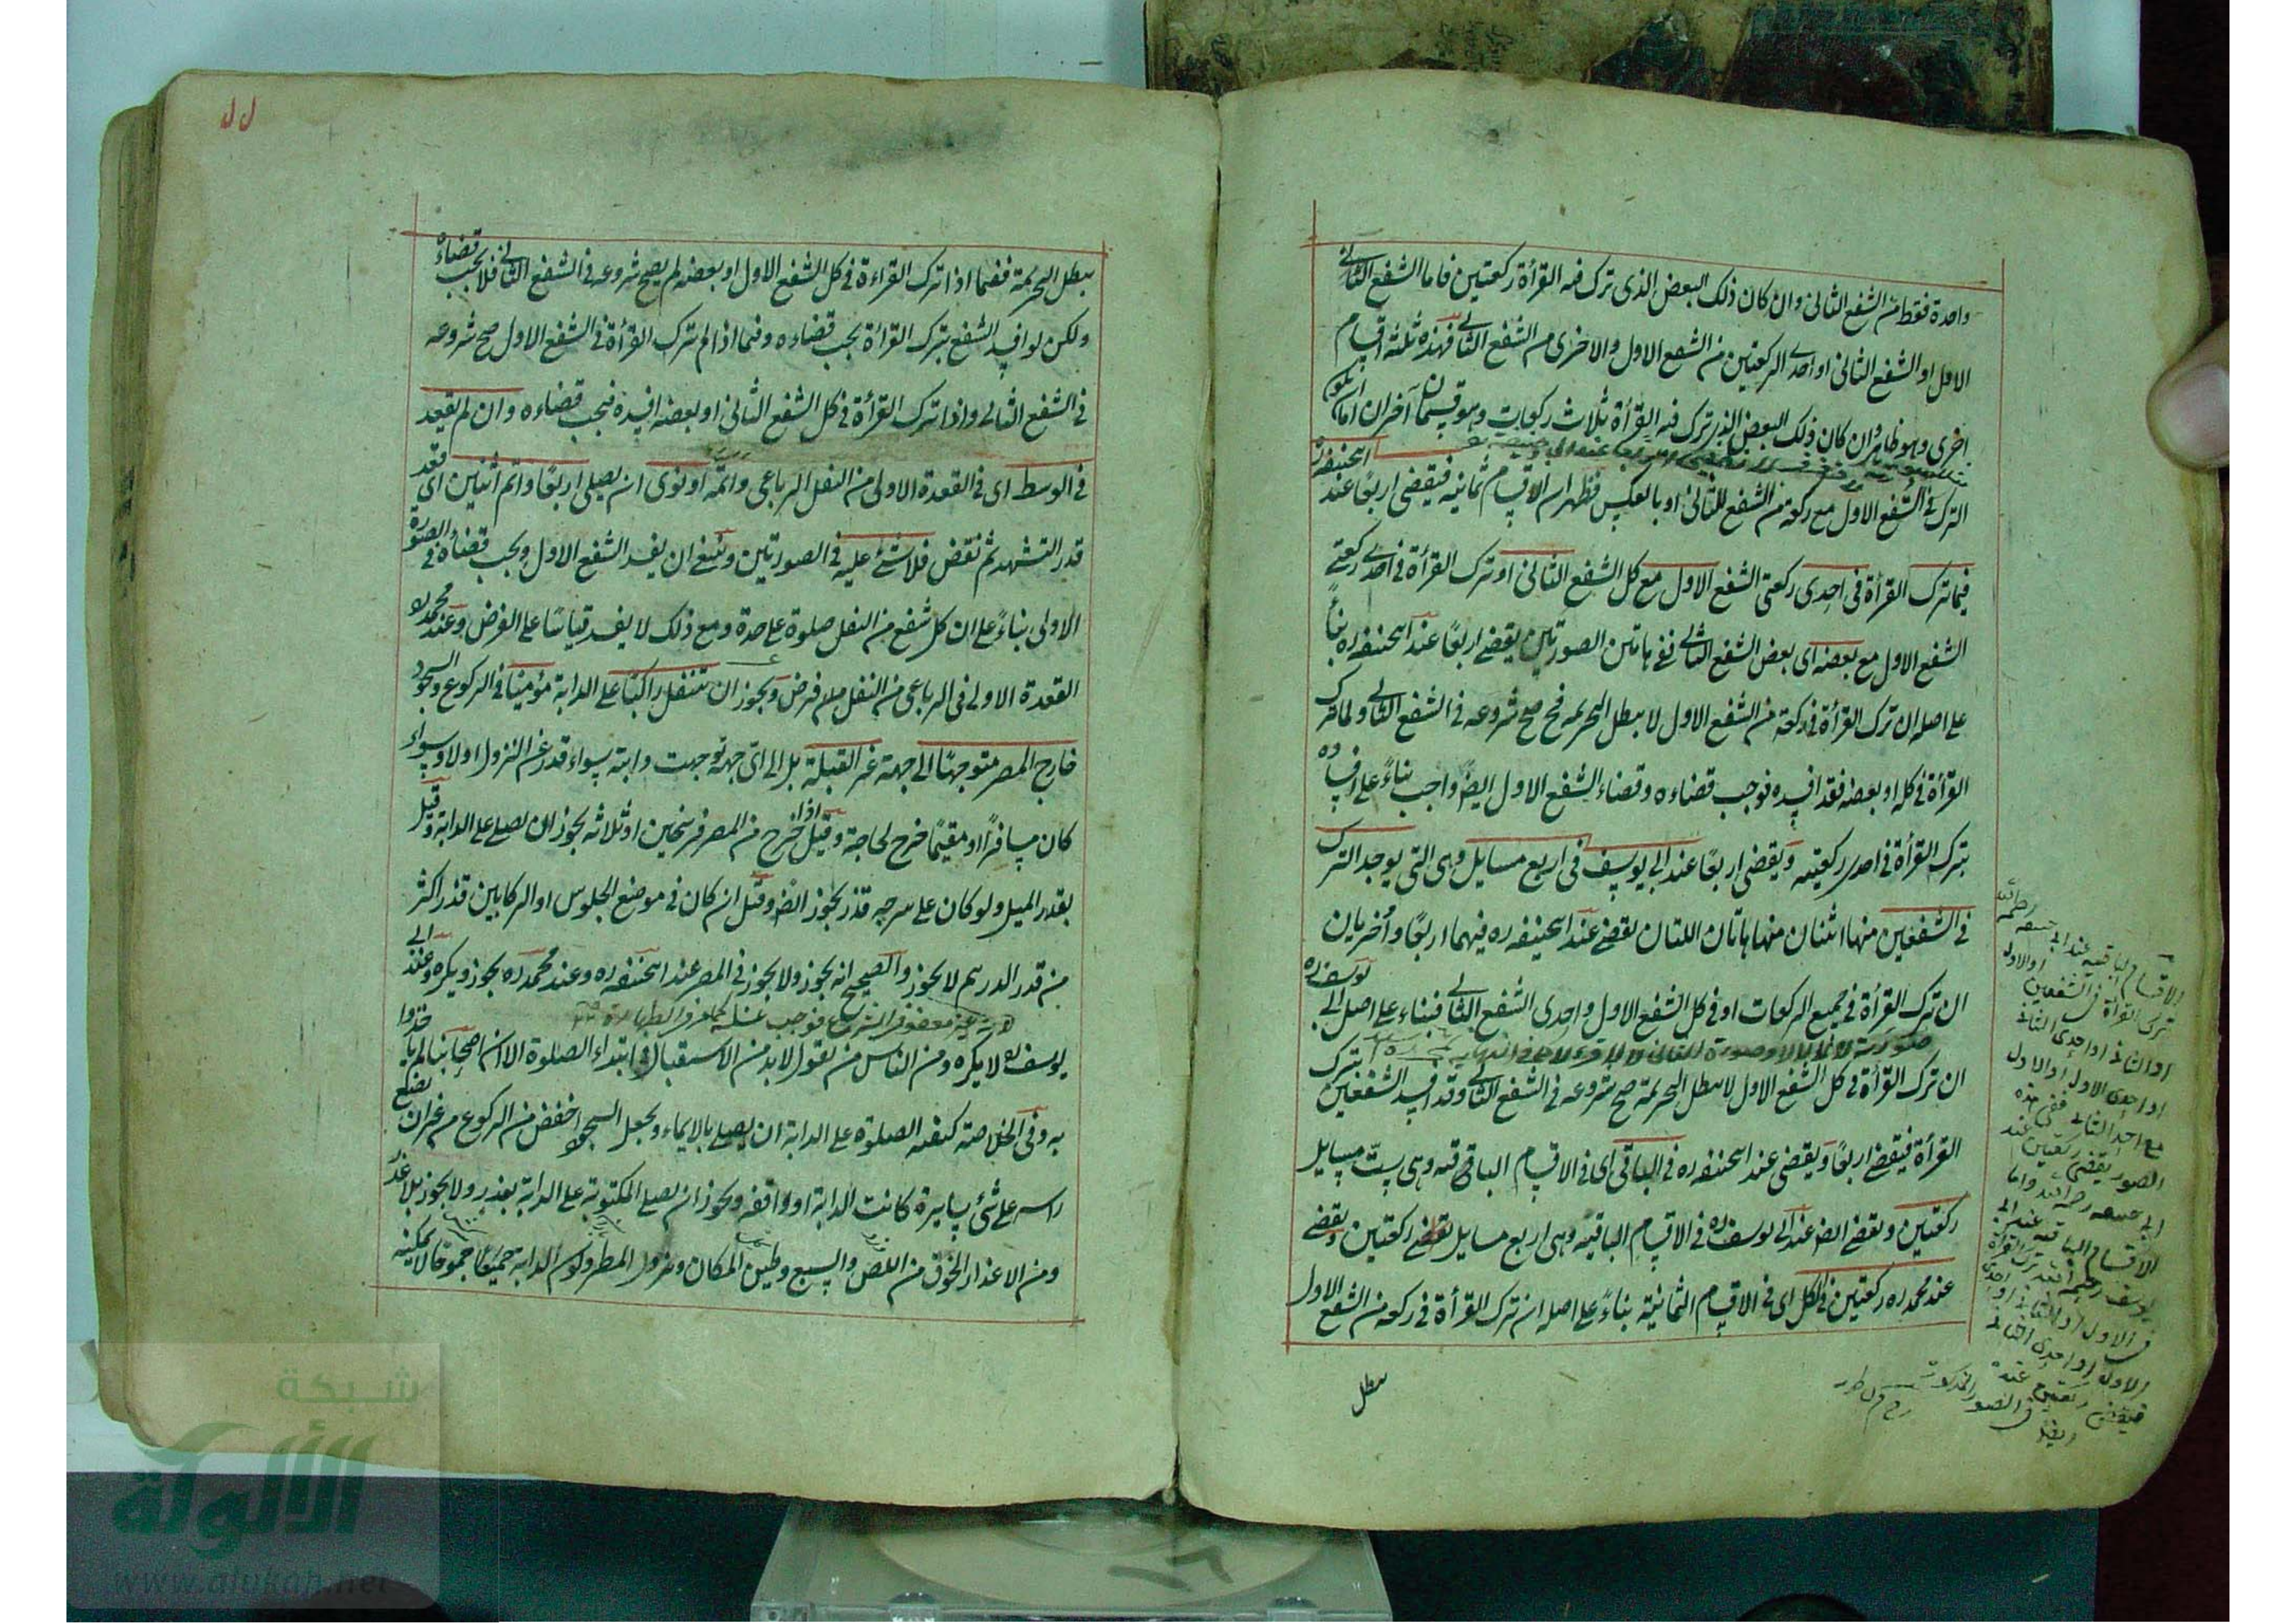 واحدة فقط من الشفع الثانى وان كان ذلك البعض الذى ترك فيه القرأة ركعتين فاما الشفع الثانى
الاول او الشفع الثانى او احدى الركعتين من الشفع الاول والاخرى من الشفع الثانى فهذه ثلثة اقسام
اخرى وهو ظاهر وان كان ذلك البعض الذى ترك فيه القرأة ثلاث ركعات وهو قسمان آخران اما ان يكون
الترك فى الشفع الاول مع ركعة من الشفع الثانى او بالعكس فظهر ان الاقسام ثمانية فيقضى اربعًا عند ابيحنيفة ره
فيما ترك القرأة فى احدى ركعتى الشفع الاول مع كل الشفع الثانى او ترك القرأة فى احدى ركعتى
الشفع الاول مع بعضه اى بعض الشفع الثانى ففى هاتين الصورتين يقضى اربعًا عند ابيحنيفه ره بناءً
على اصله ان ترك القرأة فى ركعة من الشفع الاول لا يبطل التحريمه فح صح شروعه فى الشفع الثانى ولما ترك
القرأة فى كله او بعضه فقد افسده فوجب قضاءه وقضاء الشفع الاول ايضًا واجب بناءً على افساده
بترك القرأة فى احدى ركعتيه ويقضى اربعًا عند ابى يوسف فى اربع مسايل وهى التى يوجد الترك
فى الشفعين منها اثنتان منها هاتان اللتان يقضى عند ابيحنيفه ره فيهما اربعًا وأخريان
ان ترك القرأة فى جميع الركعات او فى كل الشفع الاول واحدى الشفع الثانى فبناء على اصل ابى يوسف ره
ان ترك القرأة فى كل الشفع الاول لا يبطل التحريمة صح شروعه فى الشفع الثانى وقد افسد الشفعين بترك
القرأة فيقضى اربعًا ويقضى عند ابيحنيفه ره فى الباقى اى فى الاقسام الباقية وهى ست مسايل
ركعتين ويقضى ايضا عند ابى يوسف ره فى الاقسام الباقيه وهى اربع مسايل يقضى ركعتين ويقضى
عند محمد ره ركعتين فى الكل اى فى الاقسام الثمانية بناءً على اصله ان ترك القرأة فى ركعه من الشفع الاول
يبطل
الاقسام الباقيه عند ابى حنيفه رحمه الله
ترك القرأة فى الشفعين او الاول
او الثانى او احدى الثانى
او احدى الاول او الاول
مع احد الثانى ففى هذه
الصور يقضى ركعتين عند
ابى حنيفه رحمه الله واما
الاقسام الباقيه عند ابى
يوسف رحمه الله ترك القرأة
فى الاول او الثانى او احدى
الاول او احدى الثانى
فيقضى ركعتين عنده
ايضا فى الصور المذكورة
يبطل التحريمة ففيما اذا ترك القراءة فى كل الشفع الاول او بعضه لم يصح شروعه فى الشفع الثانى فلا يجب قضاءه
ولكن لو افسد الشفع بترك القرأة يجب قضاءه وفيما اذا لم ترك القرأة فى الشفع الاول صح شروعه
فى الشفع الثانى واذا ترك القرأة فى كل الشفع الثانى او بعضه افسده فيجب قضاءه وان لم يقعد
فى الوسط اى فى القعدة الاولى من النفل الرباعى واتمه او نوى ان يصلى اربعًا واتم اثنين اى قعد
قدر التشهد ثم نقض فلا شئ عليه فى الصورتين وينبغى ان يفسد الشفع الاول ويجب قضاؤه فى الصورة
الاولى بناءً على ان كل شفع من النفل صلوة على حدة ومع ذلك لا يفسد قياسًا على الفرض وعند محمد ره
القعدة الاولى فى الرباعى من النفل فرض ويجوز ان يتنفل راكبًا على الدابة مؤميًا فى الركوع والسجود
خارج المصر متوجهًا الى جهة غير القبلة بل الى اىّ جهة توجهت دابته سواء قدر على النزول اولا وسواء
كان مسافرًا او مقيمًا خرج لحاجة وقيل اذا خرج من المصر فرسخين او ثلاثه يجوز ان يصلى على الدابة وقيل
بقدر الميل ولو كان على سرجه قذر يجوز ايضا وقيل ان كان فى موضع الجلوس او الركابين قذر اكثر
من قدر الدرهم لا يجوز والصحيح انه يجوز ولا يجوز فى المصر عند ابيحنيفه ره وعند محمد ره يجوز ويكره وعند ابى
يوسف ره لا يكره ومن الناس من يقول لا بد من الاستقبال فى ابتداء الصلوة الا ان اصحابنا لم ياخذوا
به وفى الخلاصة كيفيه الصلوة على الدابة ان يصلى بالايماء ويجعل السجود اخفض من الركوع من غير ان يضع
راسه على شئ سايرة كانت الدابة او واقفه ويجوز ان يصلى المكتوبة على الدابة بعذر ولا يجوز بلا عذر
ومن الاعذار الخوف من اللص والسبع وطين المكان ونزول المطر وكون الدابة جموحًا لا يمكنه
شبكة
الألوكة
www.alukah.net